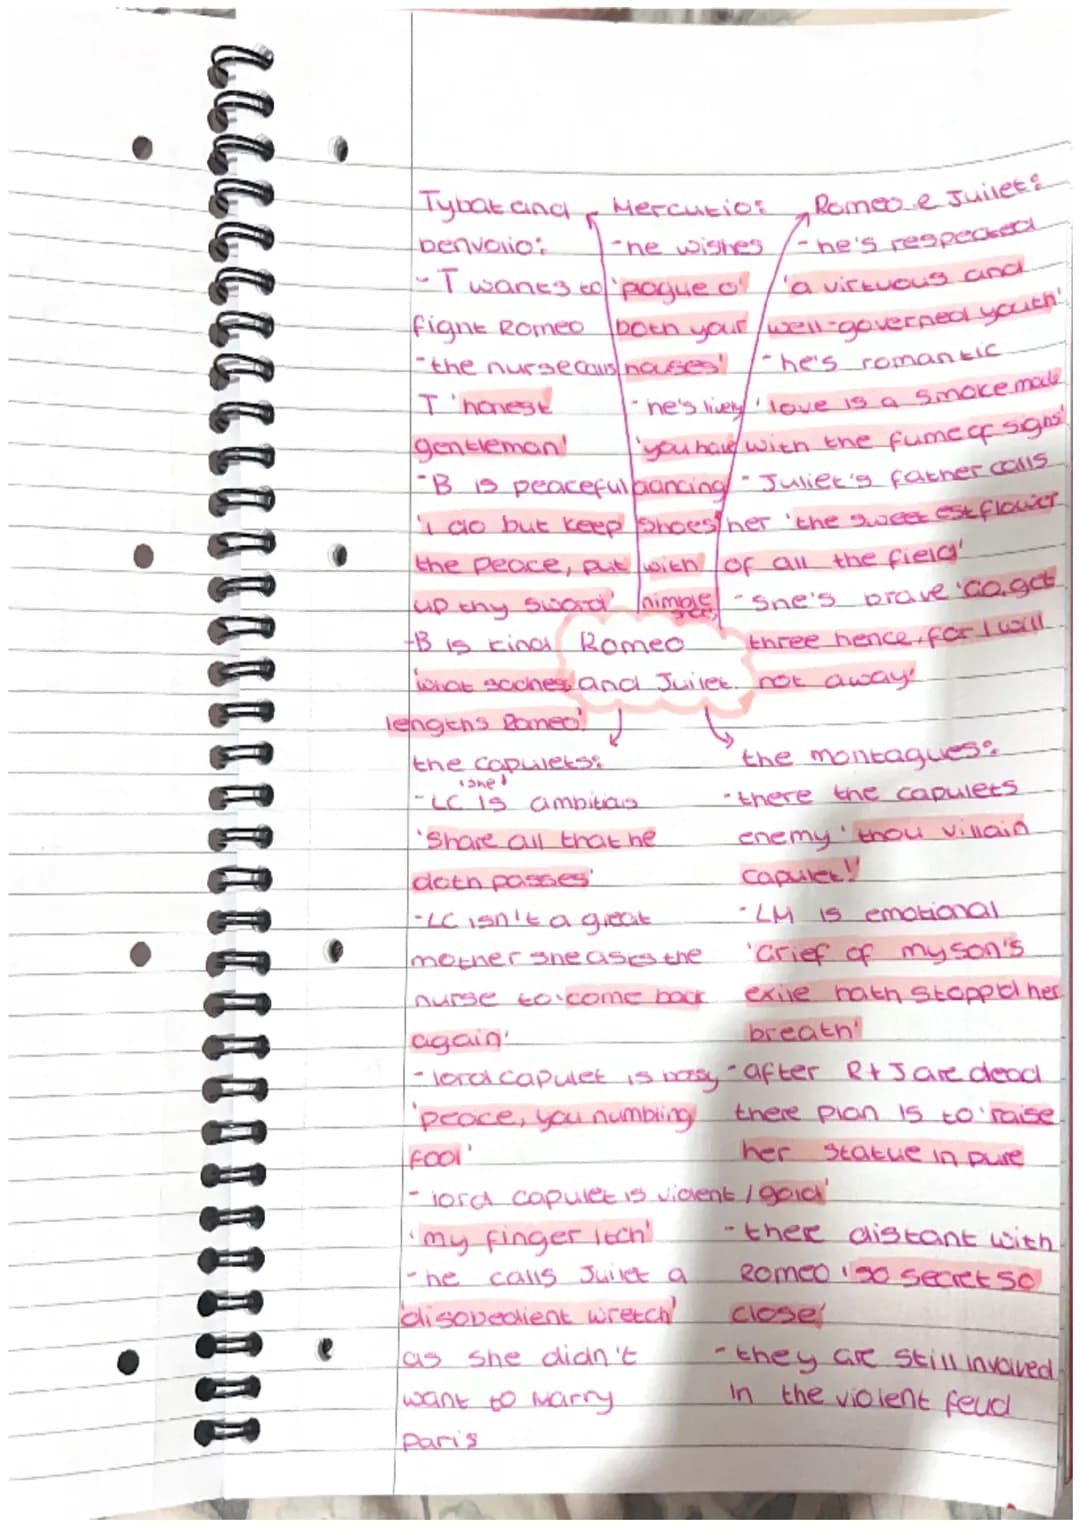 Tybalt and
benvolio:
- T wants to
fight Romeo
- the nurse calls
T 'honest
gentleman'
- B is peaceful
'i do but keep
the peace, put
up thy sword'
- B is kind
lengths Romeo'
Mercutio:
- he wishes
'pague o'
both your
houses'
- he's lively
'you have
dancing
shoes
with
nimble
Romeo & Juilet:
- he's respected
'a virtuous and
well-governed youth'
- he's romantic
'love is a smoke made
with the fume of sighs'
- Juliet's father calls
her 'the sweetest flower
of all the field'
- she's brave 'Go, get
three hence, for I will
not away'
Romeo
and Juilet.
the capulets:
- LC is ambitias
'she'
'Share all that he
doth posses'
- LC isn't a great
mother she asks the
nurse to 'come back
again'
- lord capulet is bossy
'peace, you mumbling
fool'
- lord capulet is violent /
'my finger itch'
- he calls Juilet a
'disobedient wretch'
as she didn't
want to Marry
Paris
the montagues:
- there the capulets
enemy 'thou villain
capulet!'
- LM is emotional
'Grief of my son's
exile hath stopp'd her
breath'
- after R+J are dead
there plan is to 'raise
her statue in pure
gold'
- there distant with
Romeo 'so secret so
close'
- they are still involved
in the violent feud